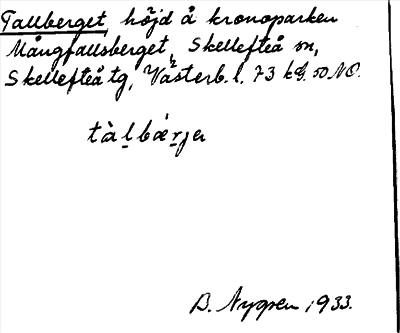 Tallberget, höjd å kronoparken
Mångfallsberget, Skellefteå sn,
Skellefteå tg, Västerb. l. 73 kv. 50 NO.
tàl̲bær̲jɐ
B. Nygren 1933.